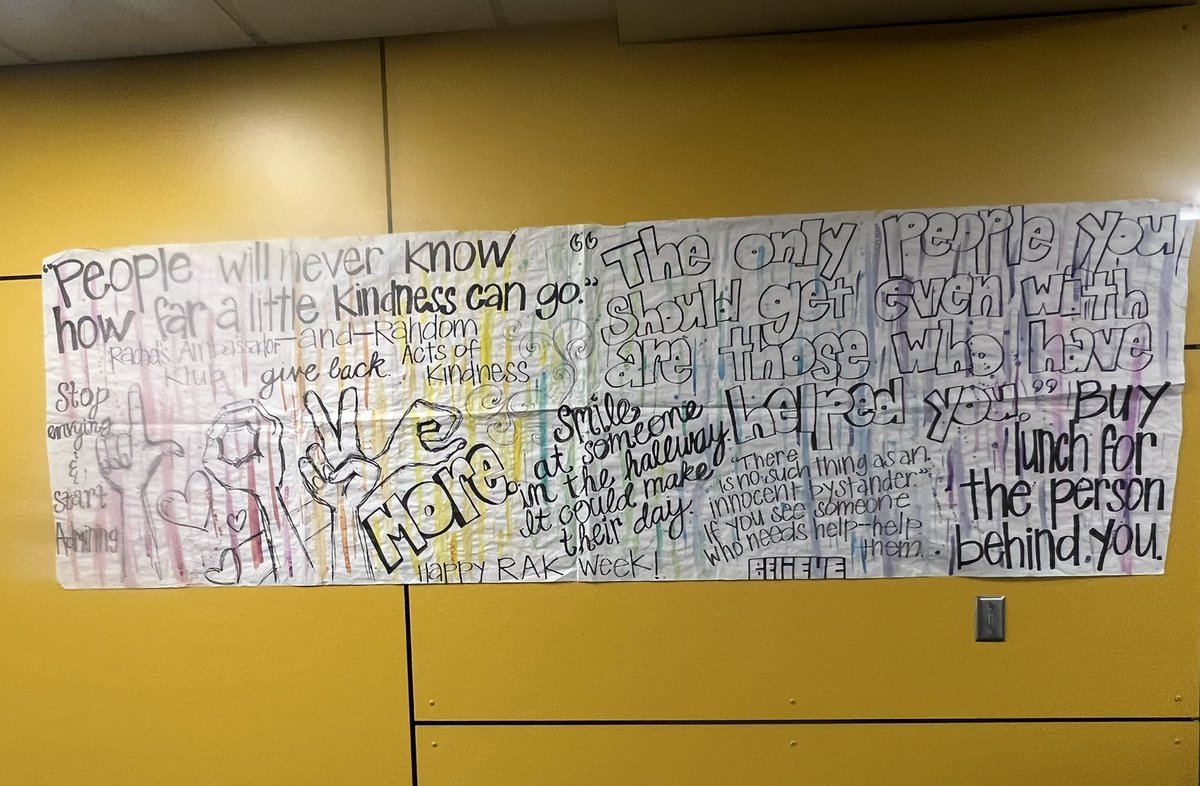 "People will never know
how far a little kindness can go."
Rachel's Ambassador -and- Random
Klub give back. Acts of
Kindness
Stop
envying
&
start
Admiring
More.
Happy RAK Week!
Smile
at someone
in the hallway.
It could make
their day.
"The only people you
should get even with
are those who have
helped you."
"There
is no such thing as an
innocent bystander"
If you see someone
who needs help-help
them.
BELIEVE
Buy
lunch for
the person
behind you.